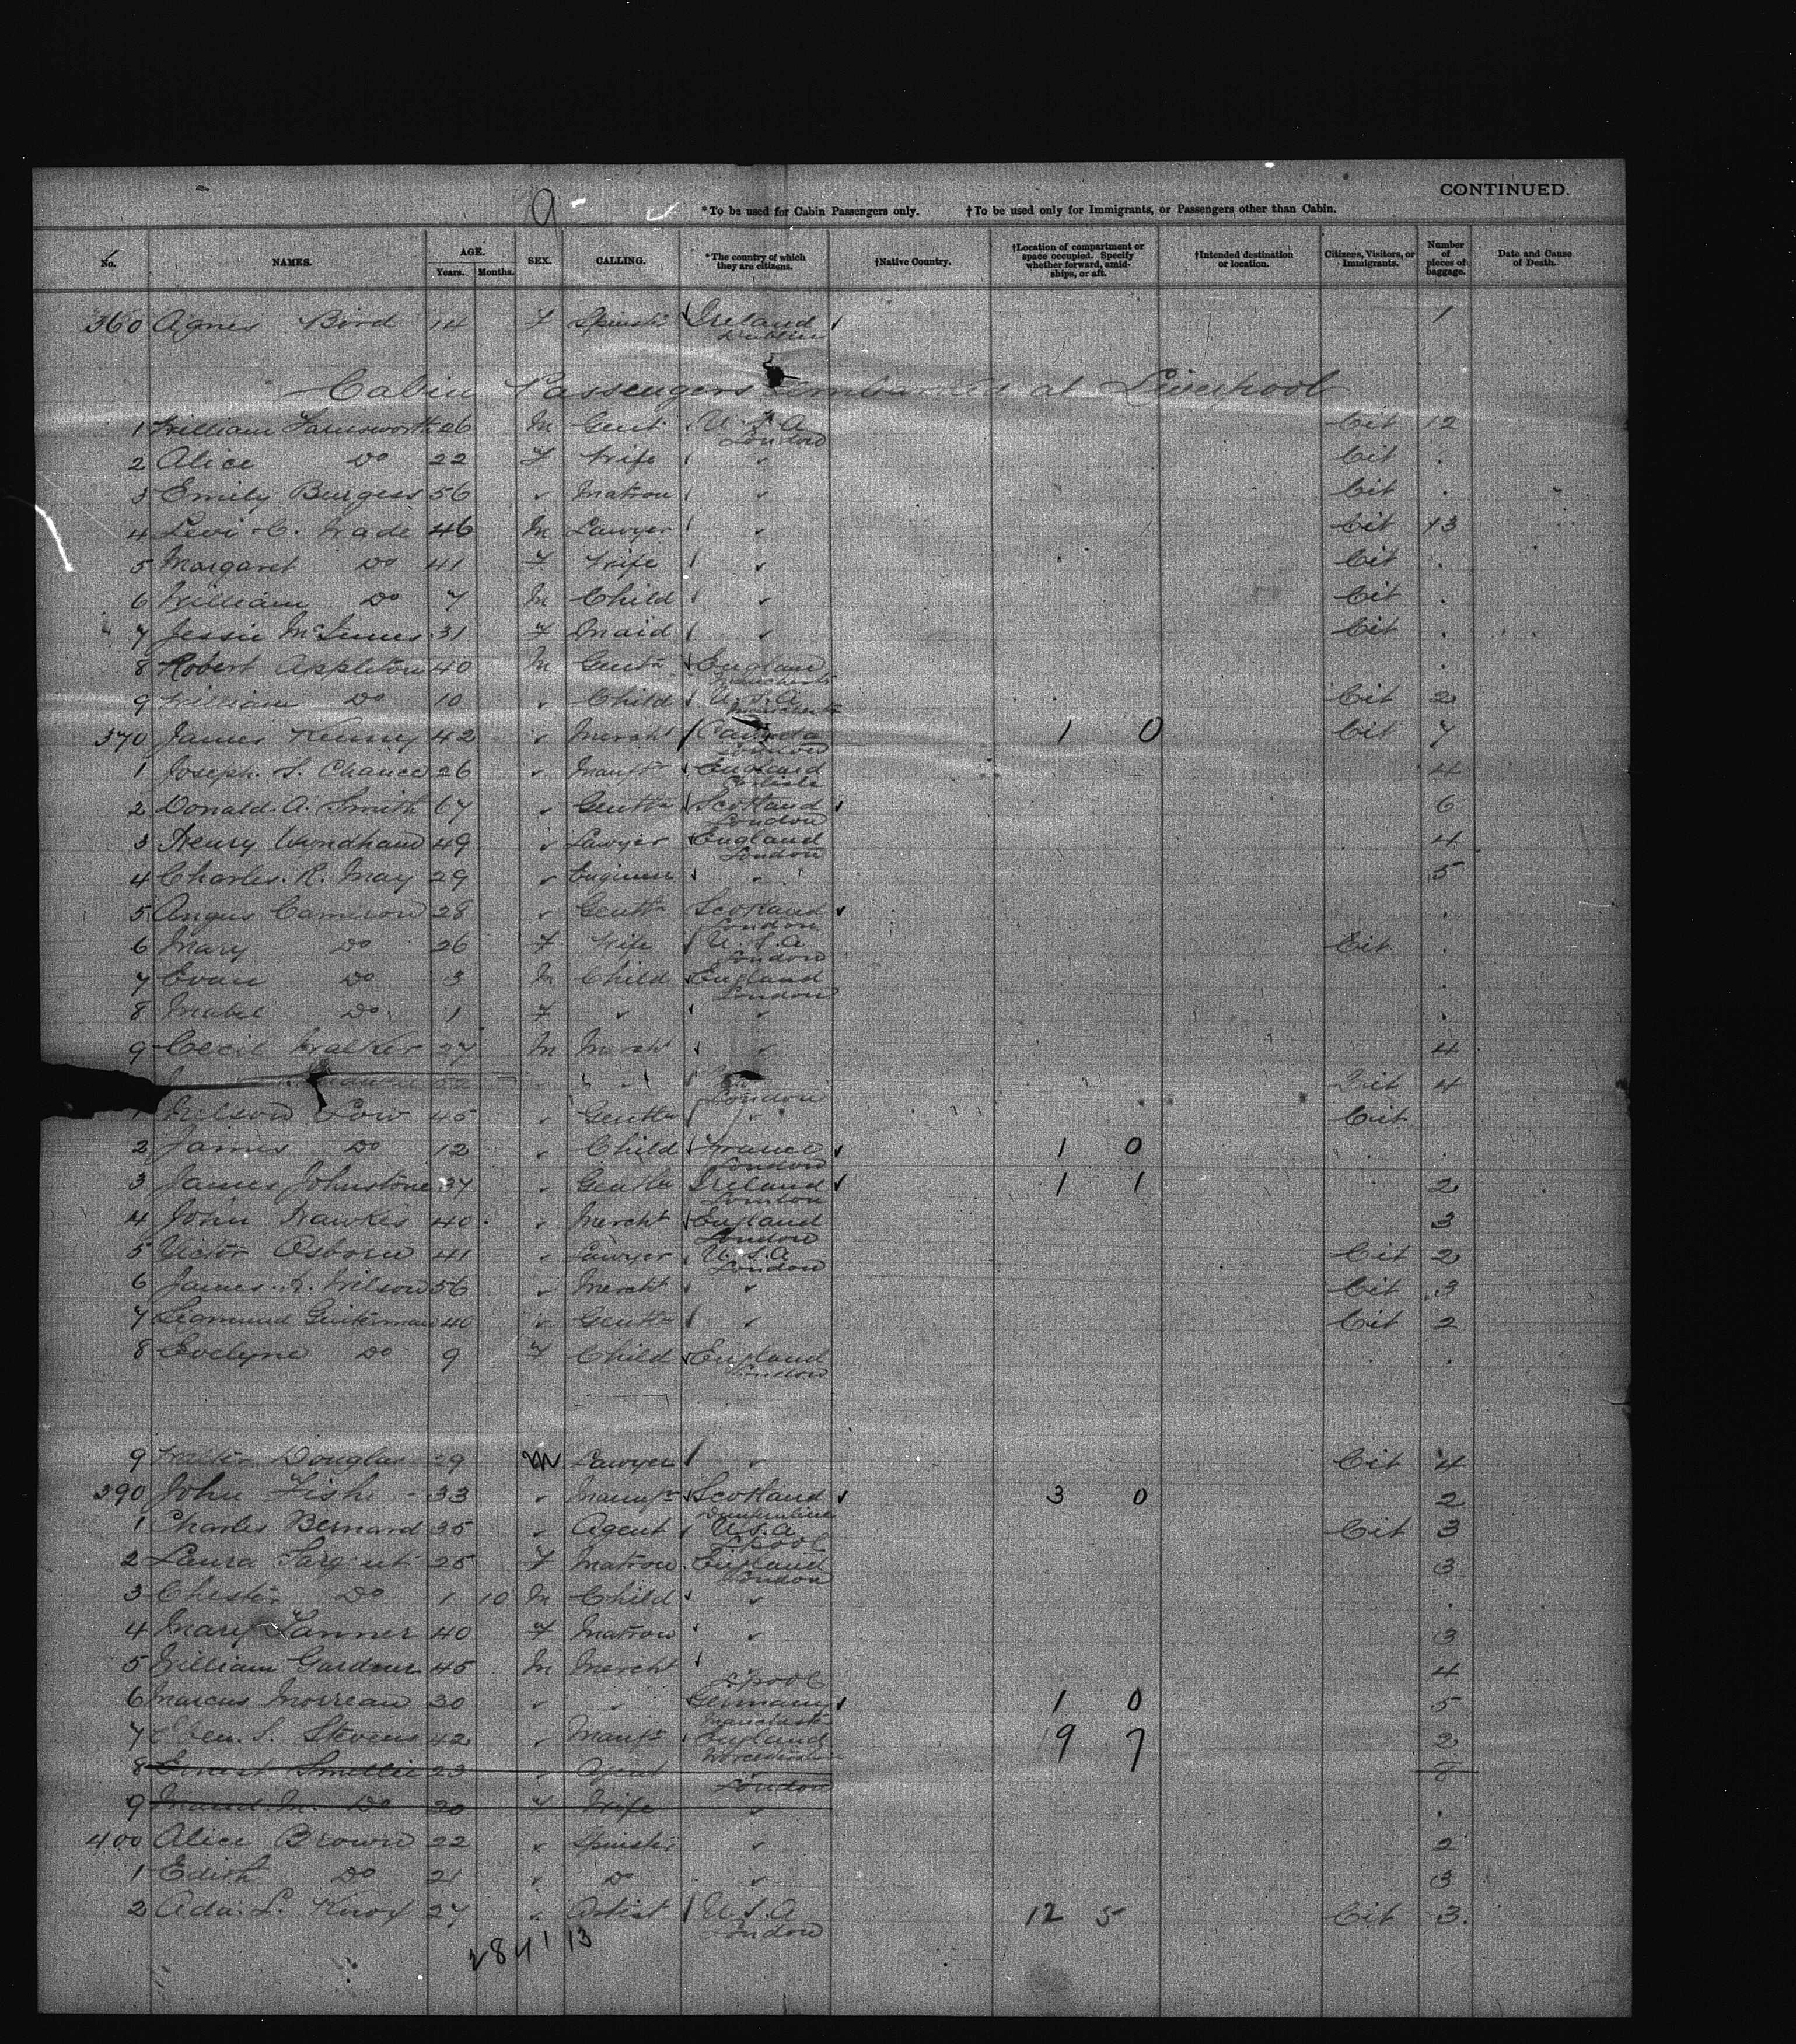 CONTINUED.
9
*To be used for Cabin Passengers only. †To be used only for Immigrants, or Passengers other than Cabin.
No. NAMES. AGE. Years. Months. SEX. CALLING. *The country of which they are citizens. †Native Country. †Location of compartment or space occupied. Specify whether forward, amidships, or aft. †Intended destination or location. Citizens, Visitors, or Immigrants. Number of pieces of baggage. Date and Cause of Death.
360 Agnes Bird 14 F Spinstr Ireland 1
Dublin
Cabin Passengers embarked at Liverpool
1 William Farnsworth 26 M Gent U.S.A Cit 12
London
2 Alice Do 22 F Wife " Cit .
3 Emily Burgess 56 " Matron " Cit .
4 Levi C. Wade 46 M Lawyer " Cit 13
5 Margaret Do 41 F Wife " Cit .
6 William Do 7 M Child " Cit .
7 Jessie 31 F Maid " Cit .
8 Robert Appleton 40 M Gentn England .
Manchester
9 William Do 10 " Child U.S.A Cit 2
Manchester
370 James Kenny 42 " Mercht Canada 1 0 Cit 7
London
1 Joseph. S. Chance 26 " Manftr England 4
Carlisle
2 Donald. A. Smith 67 " Gentln Scotland 6
London
3 Henry Wyndham 49 " Lawyer England 4
London
4 Charles. R. May 29 " Engineer " 5
5 Angus Cameron 28 " Gentln Scotland .
London
6 Mary Do 26 F Wife U.S.A Cit .
London
7 Evan Do 3 M Child England .
London
8 Mabel Do 1 F " " .
9 Cecil Walker 27 M Mercht " 4
52 " " Cit 4
London
1 Wilson 45 " Gentln " Cit
2 James Do 12 " Child France 1 0 .
London
3 James Johnstone 37 " Gentln Ireland 1 1 2
London
4 John Hawkes 40 " Mercht England 3
London
5 Victor Osborn 41 " Lawyer U.S.A Cit 2
London
6 James. R. Wilson 56 " Mercht " Cit 3
7 Sigmund Guiterman 40 " Gentln " Cit 2
8 Evelyne Do 9 F Child England .
London
9 Walter Douglas 29 M Lawyer " Cit 4
390 John Fisher 33 " Manufr Scotland 3 0 2
Dunfermline
1 Charles Bernard 35 " Agent U.S.A Cit 3
L'pool
2 Laura Sargent 25 F Matron England 3
London
3 Chester Do 1 10 M Child " .
4 Mary Tanner 40 F Matron " 3
5 William Gardner 45 M Mercht 4
L'pool
6 Marcus Morreau 30 " " Germany 1 0 5
Manchester
7 Eben. S. Stevens 42 " Manfr England 19 7 2
Worcestershire
8 Ernest Smellie 23 " Agent " 8
London
9 Maud. M. Do 20 F Wife " .
400 Alice Brown 22 " Spinstr " 2
1 Edith Do 21 " Do " 3
2 Ada. L. Knox 27 " Artist U.S.A 12 5 Cit 3.
London